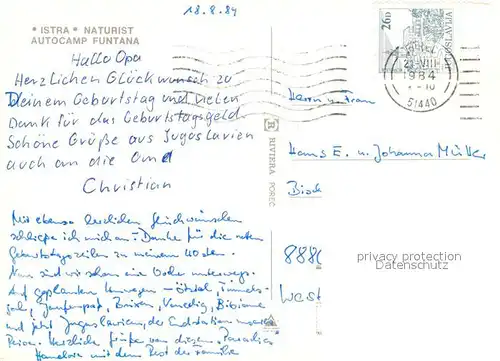 18.8.84
* ISTRA * NATURIST
AUTOCAMP FUNTANA
Hallo Opa
Herzlichen Glückwunsch zu
Deinem Geburtstag und vielen
Dank für das Geburtstagsgeld.
Schöne Grüße aus Jugoslavien
auch an die Oma
Christian
Mit ebenso herzlichen Glückwünschen
schließe ich mich an. Danke für die
Geburtstagszeilen zu meinem 40sten.
Nun sind wir schon eine Woche unterwegs.
Auf geplanten Umwegen – Ötztal, Timmels-
joch, Jaufenpass, Brixen, Venedig, Bibione
und jetzt Jugoslavien, der Endstation unserer
Reise. Herzliche Grüße von diesem Paradies
Hannelore mit dem Rest der Familie
RIVIERA POREČ
26D
JUGOSLAVIJA
POREČ
23.VIII
1984
51440
Herrn u. Frau
Hans E. u. Johanna Müller
888
West
privacy protection
Datenschutz